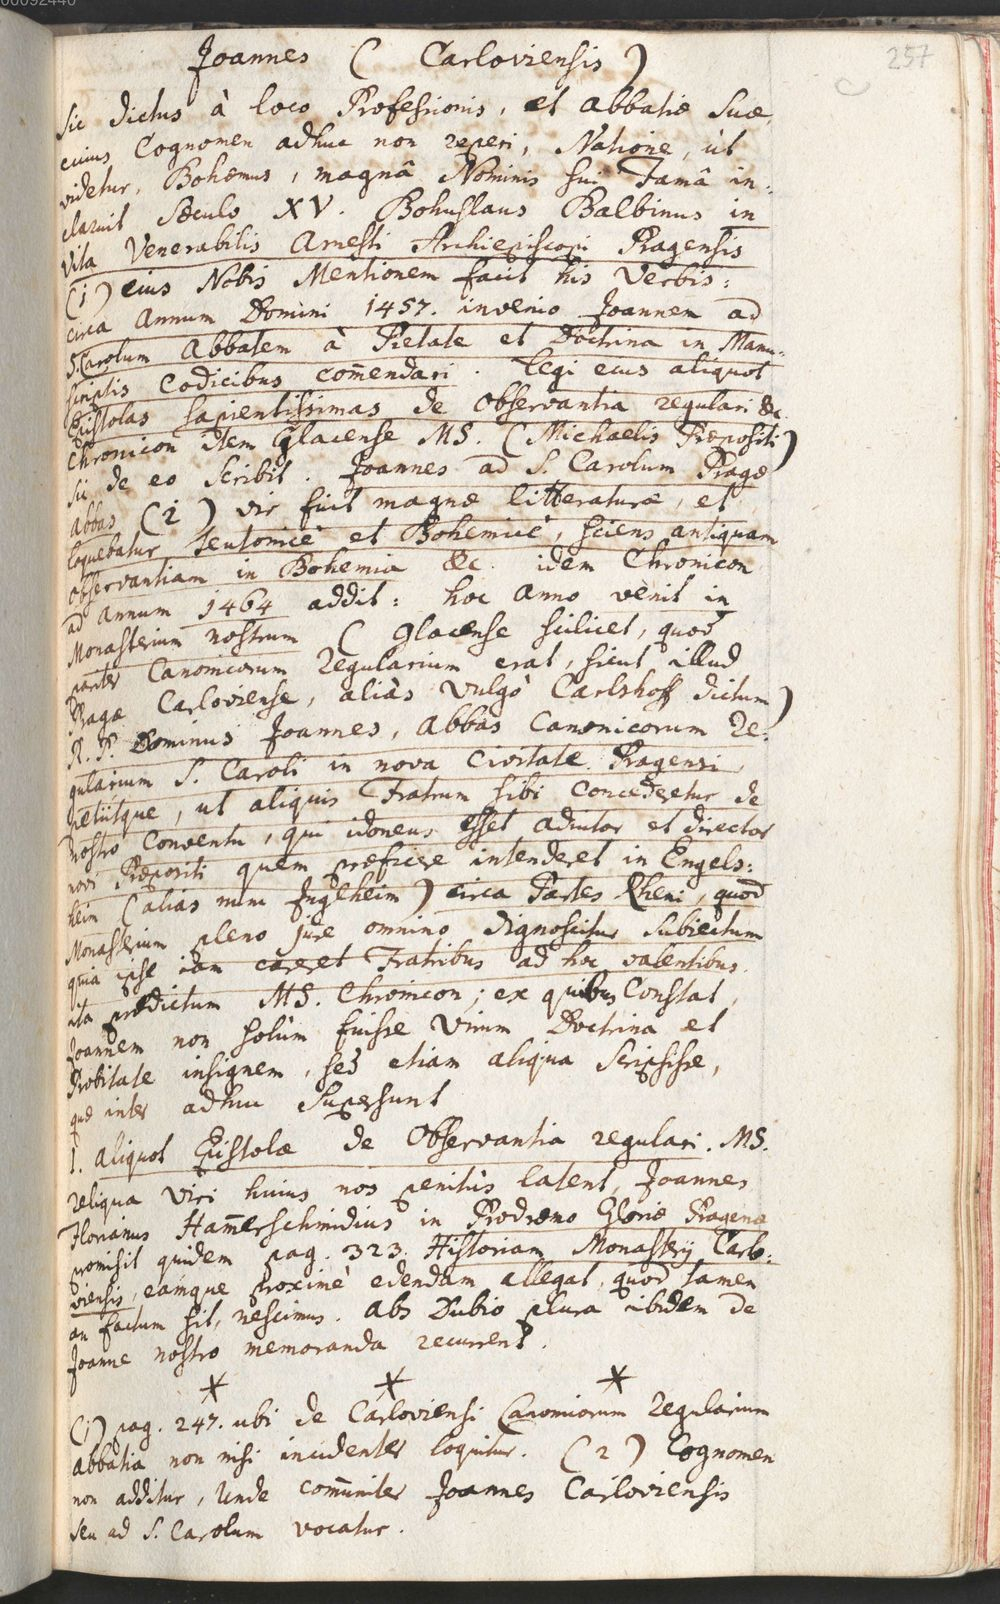 00092440
257
Joannes ( Carloviensis )
sic dictus à loco Professionis, et abbatiæ suæ,
cuius Cognomen adhuc non reperi, Natione, ut
videtur, Bohæmus, magnâ Nominis sui Famâ in-
claruit Sæculo XV. Bohuslaus Balbinus in
Vita Venerabilis Arnesti Archiepiscopi Pragensis
(1) eius Nobis Mentionem facit his Verbis:
circa Annum Domini 1457. invenio Joannem ad
S. Carolum Abbatem à Pietate et Doctrina in Manu-
scriptis Codicibus com̄endari. Legi eius aliquot
Epistolas sapientissimas de Observantia regulari &c.
Chronicon item Glacense MS. (Michaelis Præpositi)
sic de eo scribit. Joannes ad S. Carolum Pragæ
Abbas (2) vir fuit magnæ litteraturæ, et
loquebatur teutonicè et Bohemicè, sciens antiquam
observantiam in Bohemia &c. idem Chronicon
ad annum 1464 addit: hoc anno venit in
Monasterium nostrum ( Glacense scilicet, quod
pariter Canonicorum Regularium erat, sicut illud
Pragæ Carloviense, aliàs vulgò Carlshoff dictum)
R. P. Dominus Joannes, Abbas Canonicorum Re-
gularium S. Caroli in nova Civitate Pragensi,
petiitque, ut aliquis Fratrum sibi concederetur de
nostro Conventu, qui idoneus esset adiutor et director
novi Præpositi quem præficere intenderet in Engels-
heim (alias nunc Inglheim) circa Partes Rheni, quod
Monasterium pleno jure omnino dignoscitur subiectum
quia ipse iam careret Fratribus ad hoc valentibus.
ita prædictum MS. Chronicon; ex quibus Constat,
Joannem non solùm fuisse Virum Doctrina et
Probitate insignem, sed etiam aliqua scripsisse,
quæ inter adhuc supersunt
1. aliquot Epistolæ de Observantia regulari. MS.
reliqua Viri huius nos penitùs latent, Joannes
Florianus Ham̄erschmidius in Prodromo Gloriæ Pragenæ
promisit quidem pag. 323. Historiam Monasterij Carlo-
viensis, eamque proximè edendam allegat, quod tamen
an factum sit, nescimus. abs Dubio plura ibidem de
Joanne nostro memoranda recurrent.
* * *
(1) pag. 247. ubi de Carloviensi Canonicorum Regularium
abbatia non nisi incidenter loquitur. (2) Cognomen
non additur, Unde com̄uniter Joannes Carloviensis
seu ad S. Carolum vocatur.